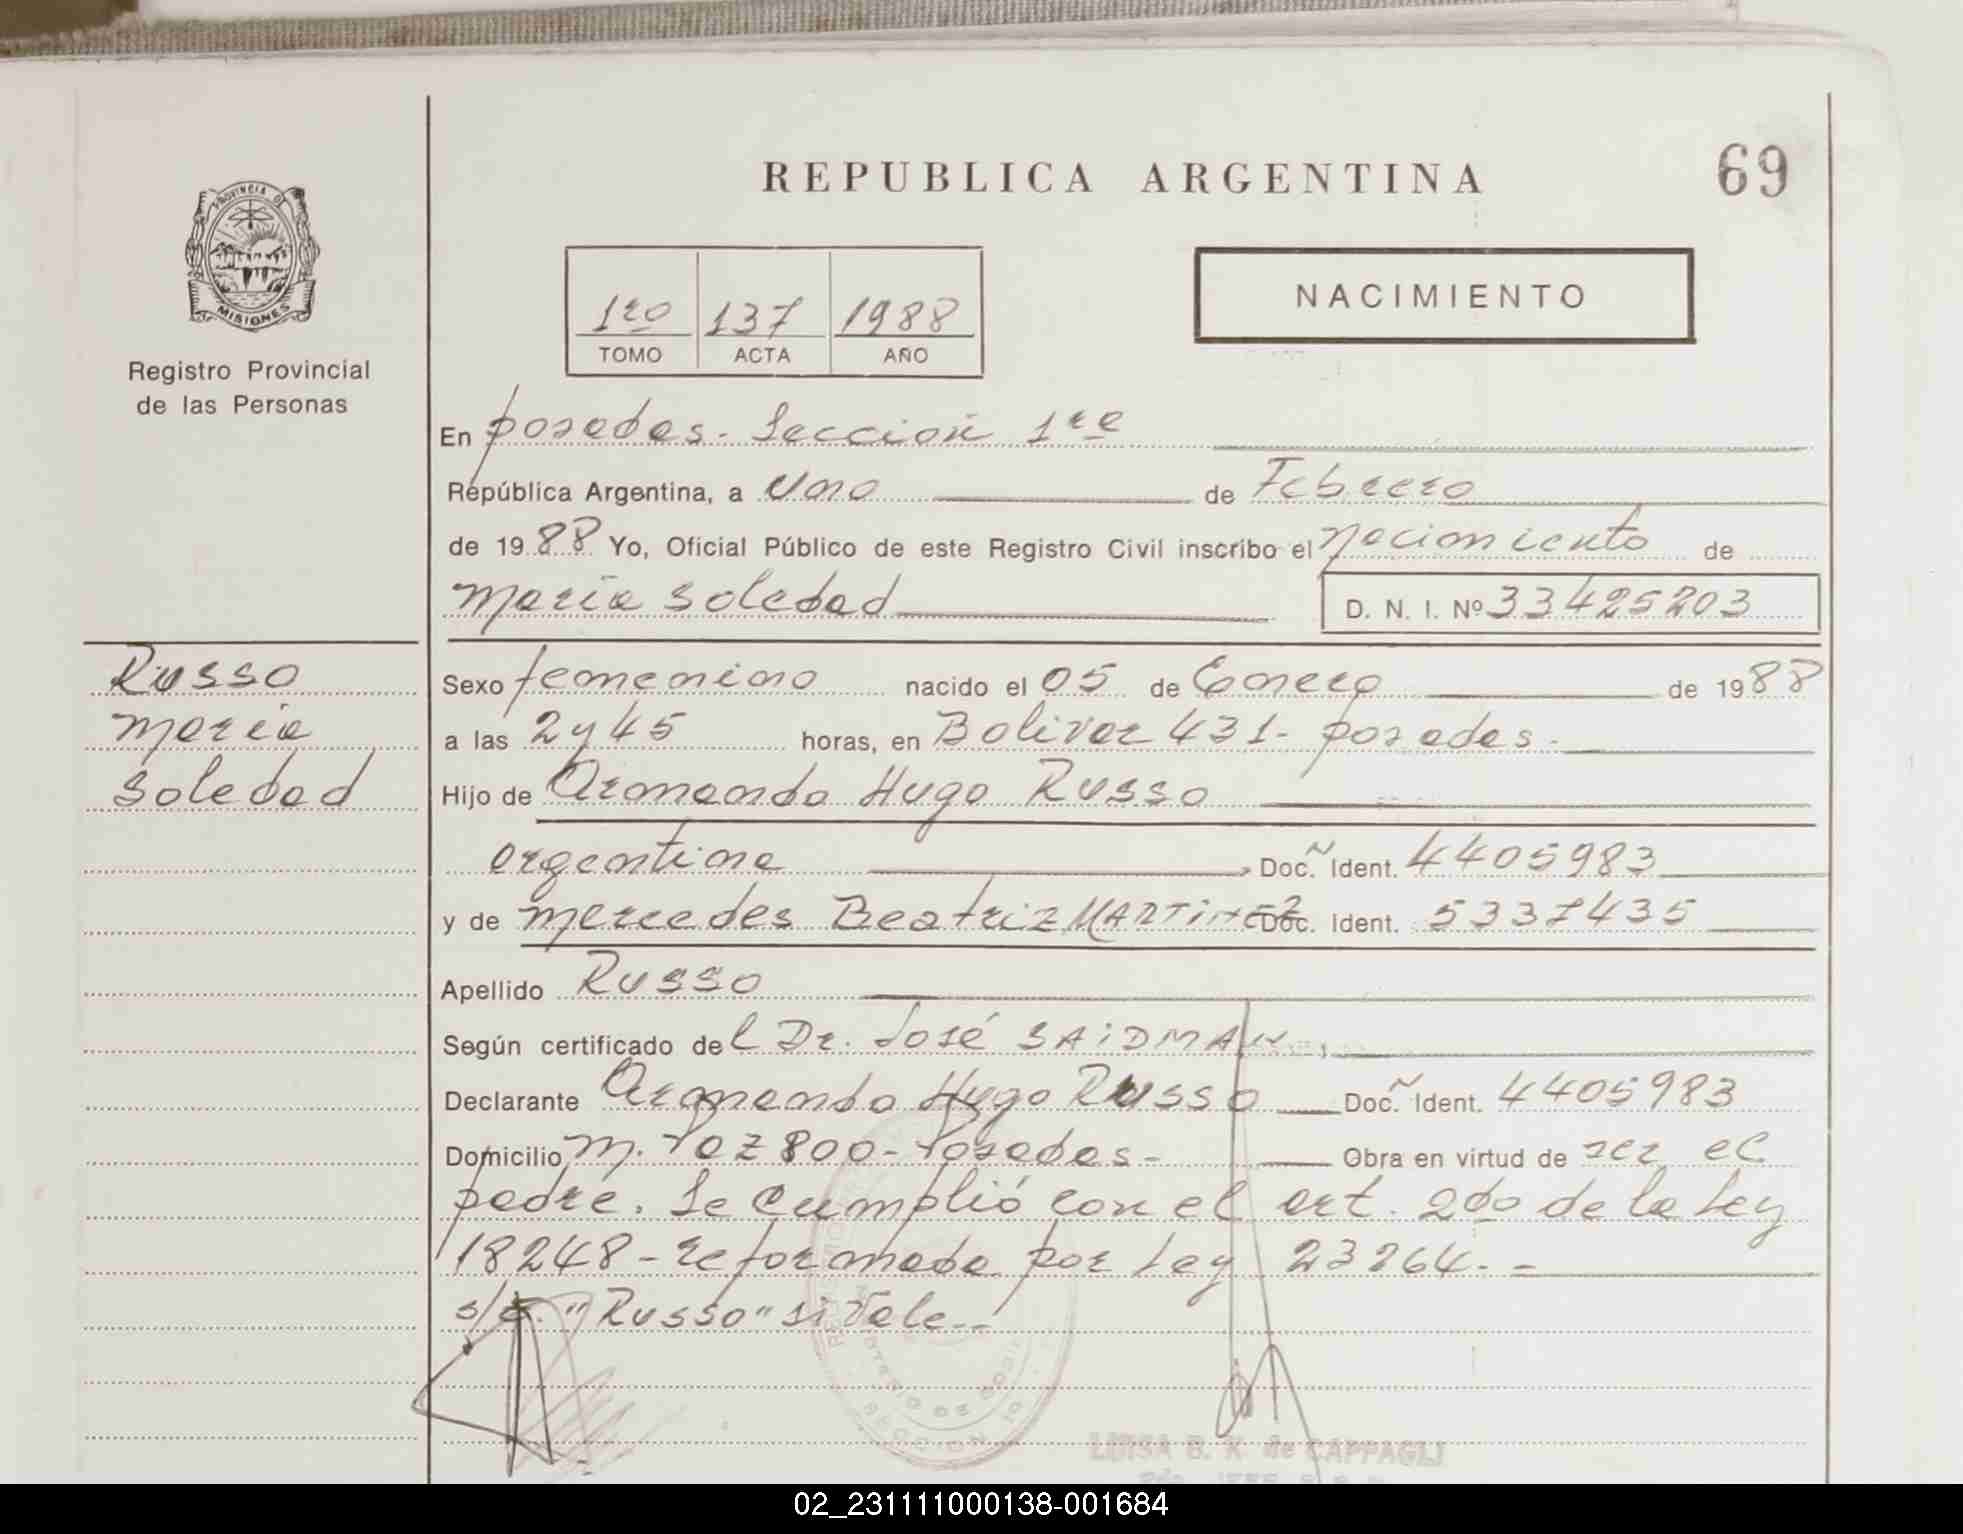 REPUBLICA ARGENTINA
69
PROVINCIA DE
MISIONES
Registro Provincial
de las Personas
1ro 137 1988
TOMO ACTA AÑO
NACIMIENTO
En posadas. Seccion 1ra
República Argentina, a uno de Febrero
de 1988 Yo, Oficial Público de este Registro Civil inscribo el nacimiento de
maria Soledad D. N. I. Nº 33425203
Russo
maria
Soledad
Sexo femenino nacido el 05 de Enero de 1988
a las 2y45 horas, en Bolivar 431- posadas-
Hijo de Armando Hugo Russo
argentina Doc. Ident. 4405983
y de mercedes Beatriz MARTINEZ Doc. Ident. 5337435
Apellido Russo
Según certificado del Dr. José SAiDMAN
Declarante Armando Hugo Russo Doc. Ident. 4405983
Domicilio M. Paz 800- Posadas- Obra en virtud de ser el
padre. Se cumplió con el art. 2do de la Ley
18248- reformada por Ley 23264.-
s/r. "Russo" si Vale.-
SECCION 1a
LUISA B. K. de CAPPAGLI
02_231111000138-001684